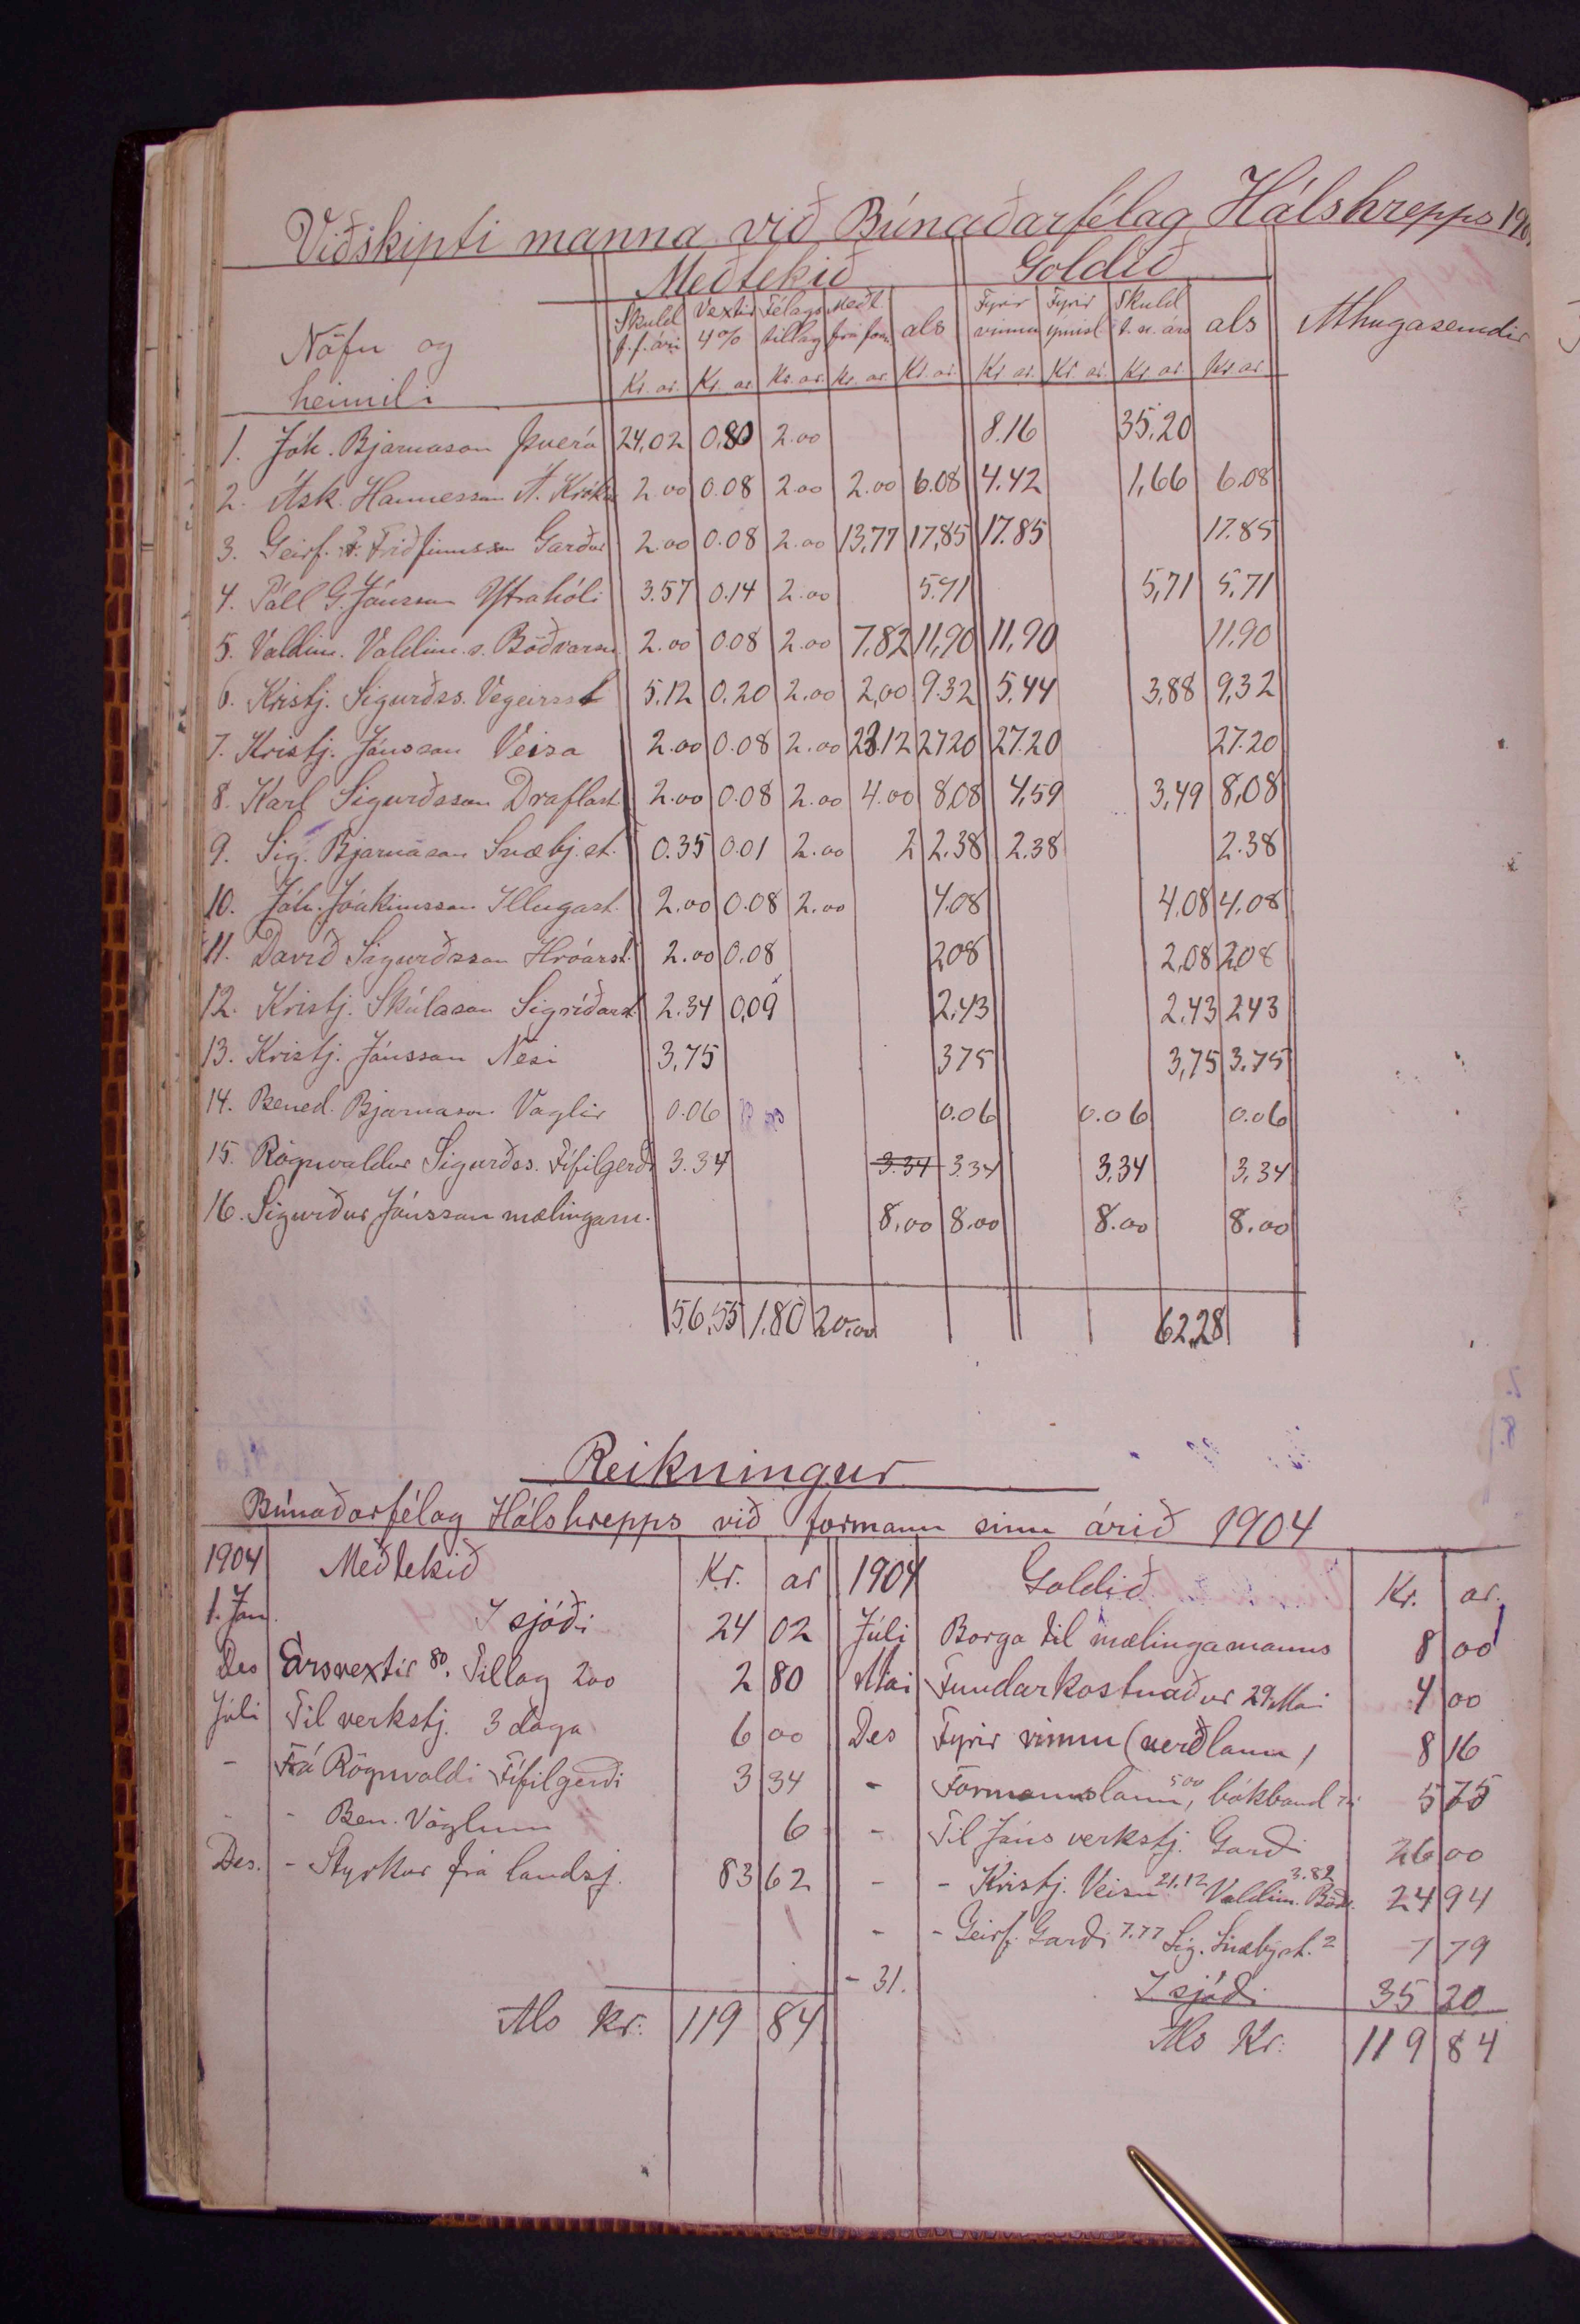 Viðskipti manna við Búnaðarfélag Hálshrepps 190
Meðtekið Goldið
Nöfn og heimili Skuld f. f. ári Vextir 4% Félags tillag Meðt. frá form. als Fyrir vinnu Fyrir ýmisl. Skuld t. n. árs als Athugasemdir
Kr. ar. Kr. ar. Kr. ar. Kr. ar. Kr. ar. Kr ar. Kr. ar. Kr. ar. Kr ar.
1. Jóh. Bjarnason Þverá 24,02 0,80 2.00 8.16 35,20
2. Ásk. Hannesson A. Króku 2.00 0.08 2.00 2.00 6.08 4.42 1,66 6.08
3. Geirf. T. Friðfinnsson Garður 2.00 0.08 2.00 13,77 17,85 17.85 17.85
4. Páll G. Jónsson Ytrahóli 3.57 0.14 2.00 5.71 5,71 5,71
5. Valdim. Valdim.s. Böðvarsn 2.00 0.08 2.00 7,82 11,90 11,90 11,90
6. Kristj. Sigurðss. Vegeirsst 5,12 0.20 2.00 2,00 9.32 5,44 3,88 9,32
7. Kristj. Jónsson Veisa 2.00 0.08 2.00 23.12 27.20 27.20 27.20
8. Karl Sigurðsson Draflast. 2.00 0.08 2.00 4.00 8,08 4,59 3,49 8,08
9. Sig. Bjarnason Snæbj.st. 0.35 0.01 2.00 2 2.38 2.38 2.38
10. Jóh. Jóakimsson Illugast. 2.00 0.08 2.00 4.08 4,08 4,08
11. Davíð Sigurðsson Hróarst. 2.00 0,08 2,08 2,08 2,08
12. Kristj. Skúlason Sigríðarst. 2.34 0,09 2,43 2,43 2,43
13. Kristj. Jónsson Nesi 3,75 3,75 3,75 3.75
14. Bened. Bjarnason Vaglir 0.06 0.06 0.06 0.06
15. Rögnvaldur Sigurðss. Fífilgerði 3.34 3.34 3.34 3,34 3,34
16. Sigurður Jónsson mælingam. 8,00 8.00 8.00 8.00
56,55 1,80 20,00 62,28
Reikningur
Búnaðarfélag Hálshrepps við formann sinn árið 1904
1904 Meðtekið Kr. ar 1904 Goldið Kr. ar.
1. Jan. I sjóði 24 02 Júli Borga til mælingamanns 8 00
Des Ársvextir 80. Tillag 200 2 80 Mai Fundarkostnaður 29. Mai 4 00
Júli Til verkstj. 3 daga 6 00 Des Fyrir vinnu (verðlaun) 8 16
- Frá Rögnvaldi Fífilgerði 3 34 - Formannslaun 5 00, bókband 75 5 75
- - Ben. Vöglum 6 - Til Jóns verkstj. Garði 26 00
Des. - Styrkur frá landsj. 83 62 - - Kristj. Veisu 21.12 Valdim. Böðv. 3.82 24 94
- - Geirf. Garði 7.77 Sig. Snæbjst. 2 7 79
- 31. I sjóði 35 20
Als kr: 119 84 Als Kr: 119 84